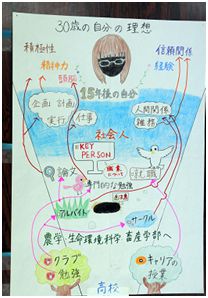 30歳の自分の理想
積極性
信頼関係
精神力
経験
頭脳
15年後の自分
企画 計画
人間関係
実行
仕事
雑務
社会人
KEY
PERSON
論文
職業について
就職
専門的な勉強
アルバイト
サークル
農学 生命環境科学 畜産学部へ
クラブ
キャリアの
勉強
授業
高校